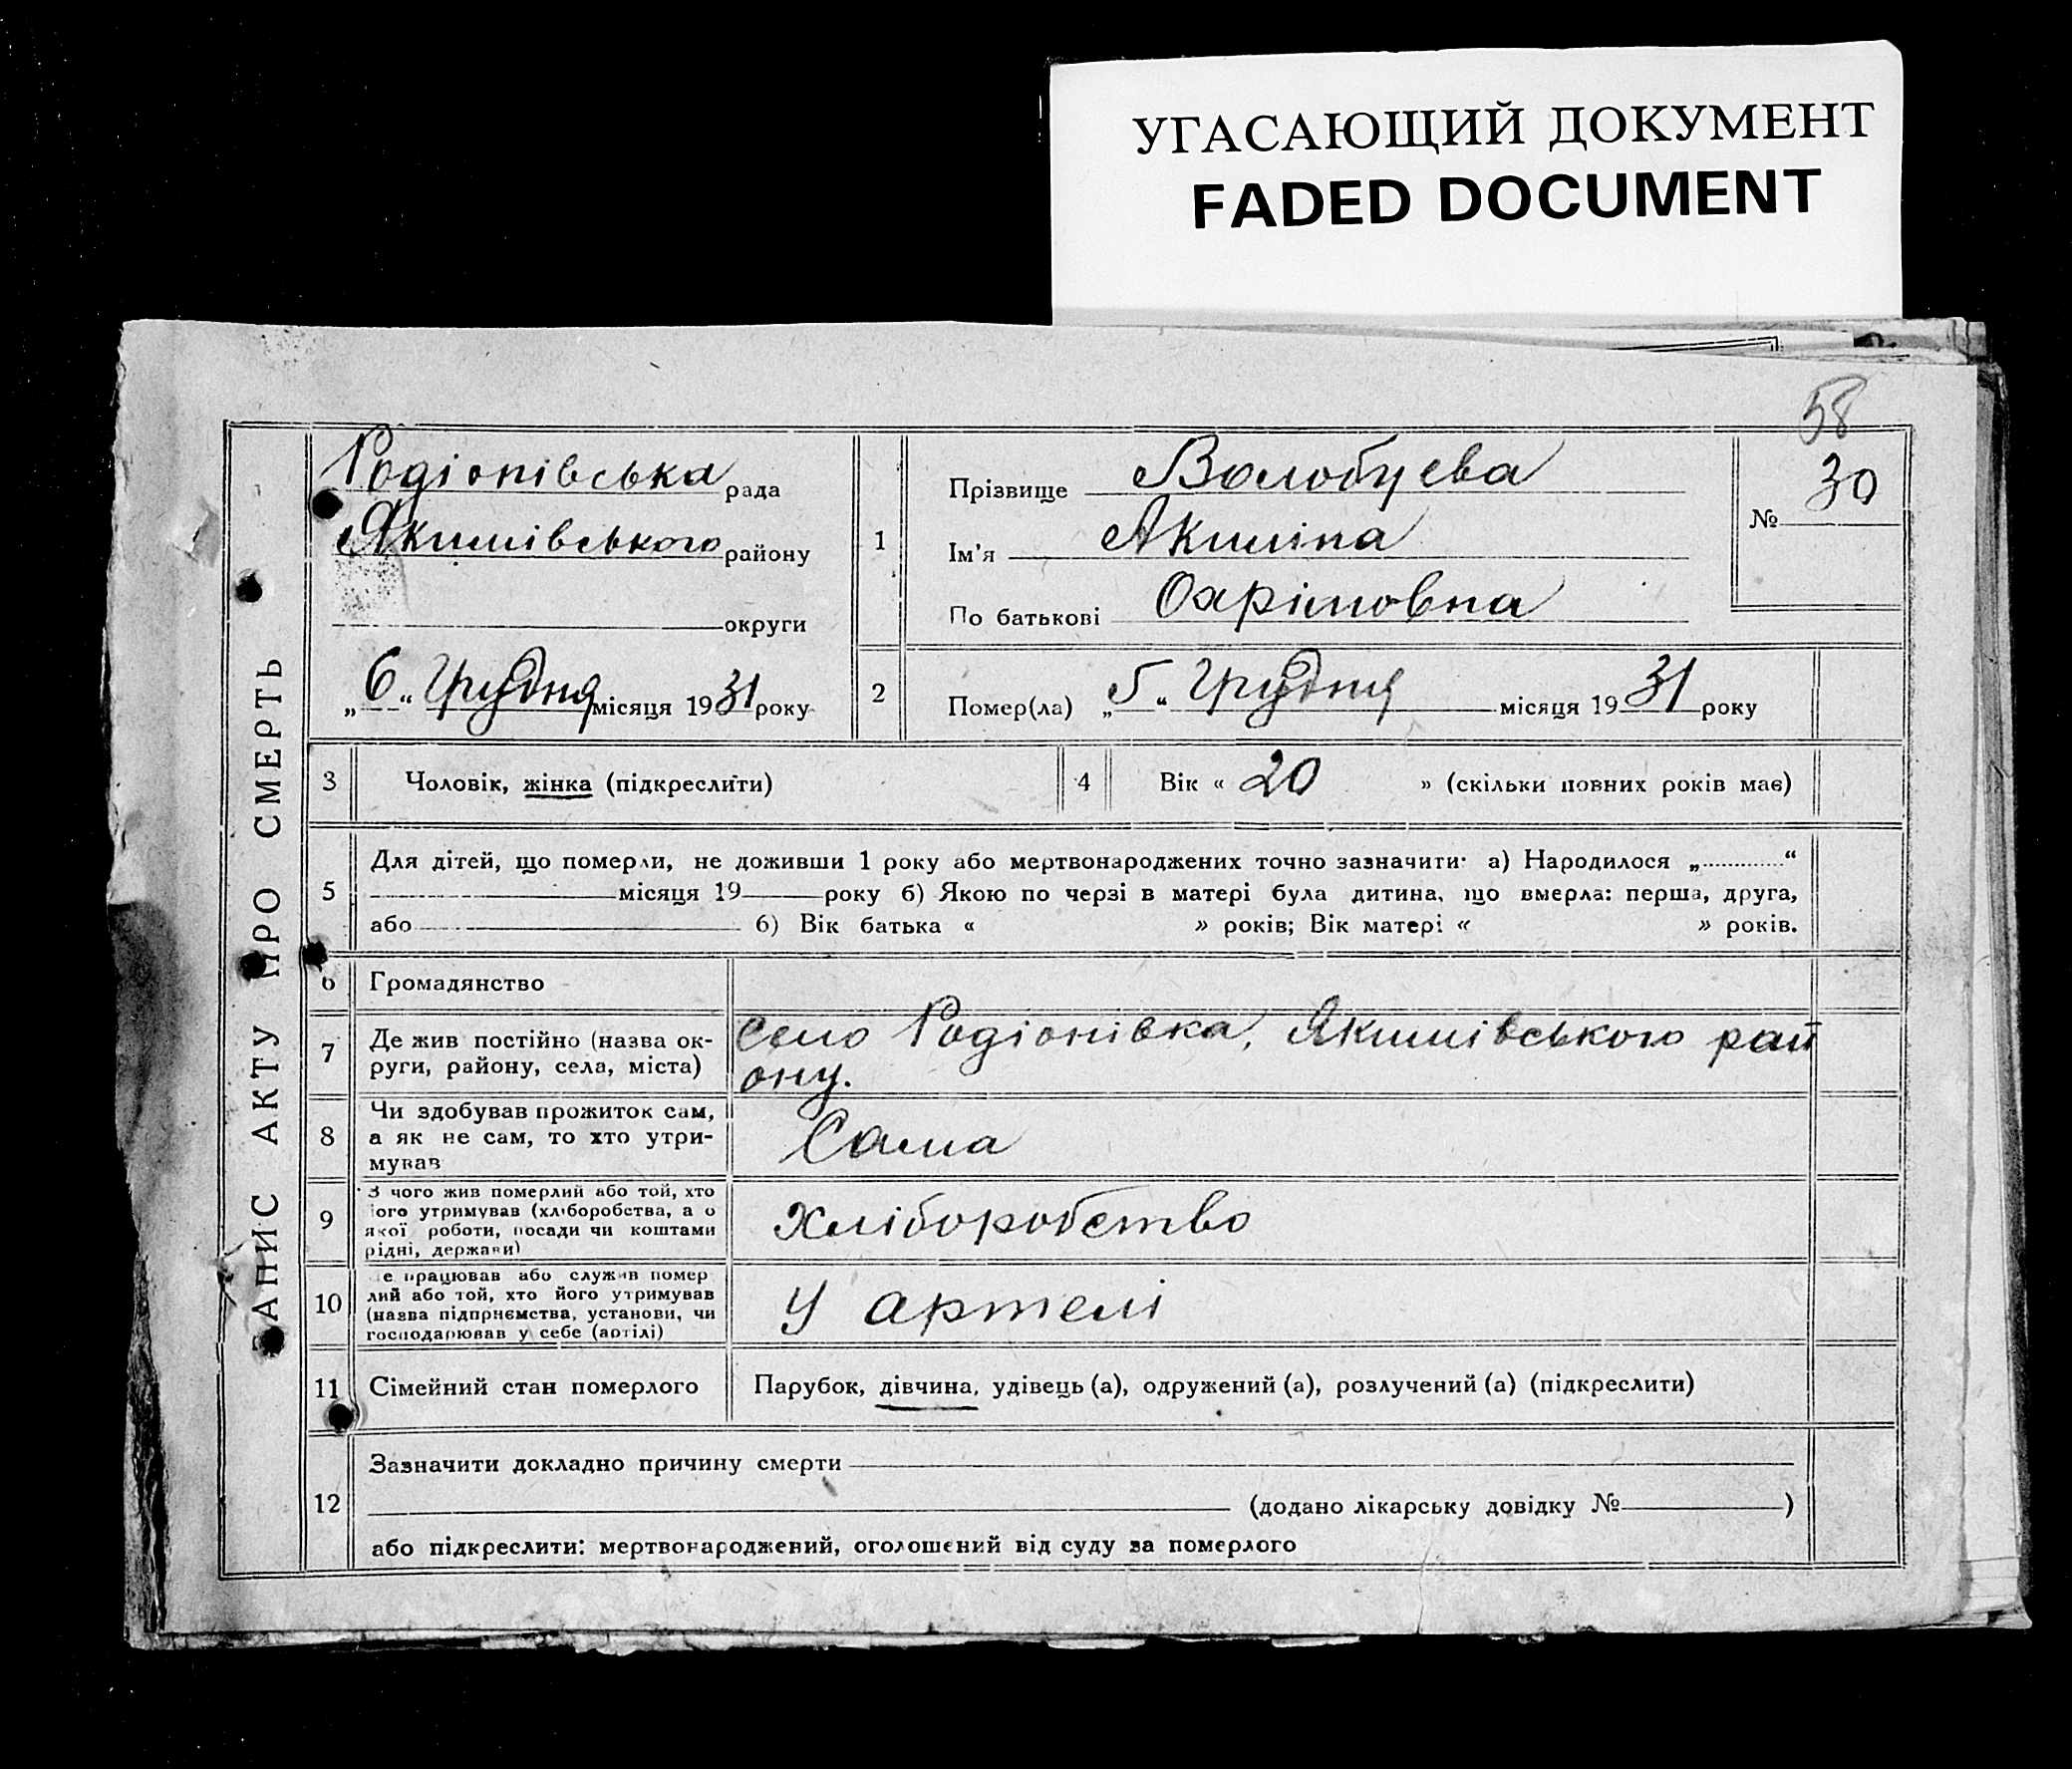 УГАСАЮЩИЙ ДОКУМЕНТ
FADED DOCUMENT
58
ЗАПИС АКТУ ПРО СМЕРТЬ
Родіонівська рада
Якимівського району
округи
„6“ Грудня місяця 1931 року
1
Прізвище Волобуева
Ім'я Акиліна
По батькові Охрімовна
№ 30
2 Помер(ла) „5“ Грудня місяця 1931 року
3 Чоловік, жінка (підкреслити)
4 Вік « 20 » (скільки повних років має)
5
Для дітей, що померли, не доживши 1 року або мертвонароджених точно зазначити: а) Народилося „............“
місяця 19 року б) Якою по черзі в матері була дитина, що вмерла: перша, друга,
або б) Вік батька « » років; Вік матері « » років.
6 Громадянство
7 Де жив постійно (назва ок-
руги, району, села, міста)
Село Родіонівка, Якимівського рай
ону.
8 Чи здобував прожиток сам,
а як не сам, то хто утри-
мував
Сама
9 З чого жив померлий або той, хто
його утримував (хліборобства, а о
якої роботи, посади чи коштами
рідні, держави)
Хліборобство
10 Де працював або служив помер
лий або той, хто його утримував
(назва підприємства, установи, чи
господарював у себе (артілі)
У артелі
11 Сімейний стан померлого
Парубок, дівчина, удівець (а), одружений (а), розлучений (а) (підкреслити)
12 Зазначити докладно причину смерти
(додано лікарську довідку № )
або підкреслити: мертвонароджений, оголошений від суду за померлого